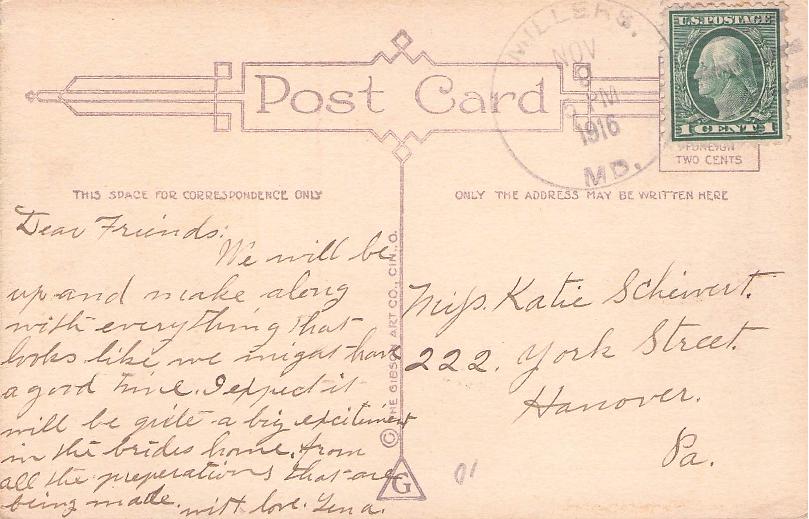 Post Card
MILLERS,
NOV
9
PM
1916
MD.
U.S. POSTAGE
1 CENT 1
FOREIGN
TWO CENTS
THIS SPACE FOR CORRESPONDENCE ONLY
ONLY THE ADDRESS MAY BE WRITTEN HERE
Dear Friends:
We will be
up and make along
with everything that
looks like we might have
a good time. I expect it
will be quite a big excitement
in the brides home, from
all the preperations that are
being made. with love. Lena.
© THE GIBSON ART CO., CIN., O.
G
Miss. Katie Scheivert.
222. York Street.
Hanover.
Pa.
01